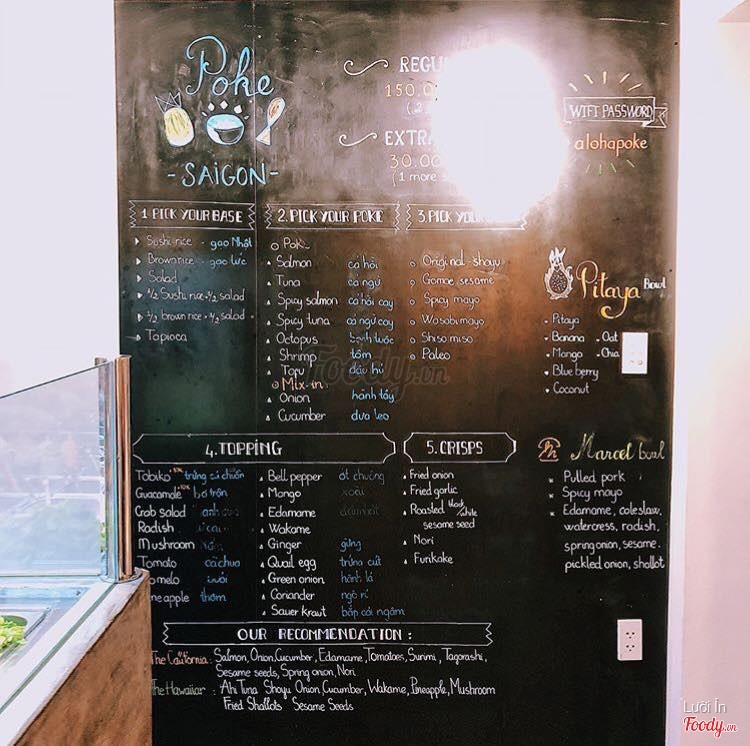 Poke
- SAIGON -
REGU
150.0
(2
EXTRA
30.00
(1 more s
WIFI PASSWORD
alohapoke
1. PICK YOUR BASE
Sushi rice - gạo Nhật
Brown rice - gạo lức
Salad
1/2 Sushi rice + 1/2 salad
1/2 brown rice + 1/2 salad
Tapioca
2. PICK YOUR POKE
Salmon cá hồi
Tuna cá ngừ
Spicy salmon cá hồi cay
Spicy tuna cá ngừ cay
Octopus bạch tuộc
Shrimp tôm
Tofu đậu hủ
Mix-in
Onion hành tây
Cucumber dưa leo
3. PICK YOUR
Original-shoyu
Gomae sesame
Spicy mayo
Wasabi mayo
Shiso miso
Paleo
Pitaya Bowl
Pitaya
Banana - Oat
Mango - Chia
Blueberry
Coconut
4. TOPPING
Tobiko trứng cá chuồn
Guacamole bơ trộn
Crab salad
Radish
Mushroom nấm
Tomato cà chua
omelo bưởi
ineapple thơm
Bell pepper ớt chuông
Mango xoài
Edamame
Wakame
Ginger gừng
Quail egg trứng cút
Green onion hành lá
Coriander ngò rí
Sauer kraut bắp cải ngâm
5. CRISPS
Fried onion
Fried garlic
Roasted black/white
sesame seed
Nori
Furikake
Marcel Bowl
Pulled pork
Spicy mayo
Edamame, coleslaw,
watercress, radish,
spring onion, sesame,
pickled onion, shallot
OUR RECOMMENDATION :
The California : Salmon, Onion, Cucumber, Edamame, Tomatoes, Surimi, Togarashi,
Sesame seeds, Spring onion, Nori
The Hawaiian : Ahi Tuna Shoyu Onion, Cucumber, Wakame, Pineapple, Mushroom
Fried Shallots Sesame Seeds
Foody.vn
Lười Ỉn
Foody.vn